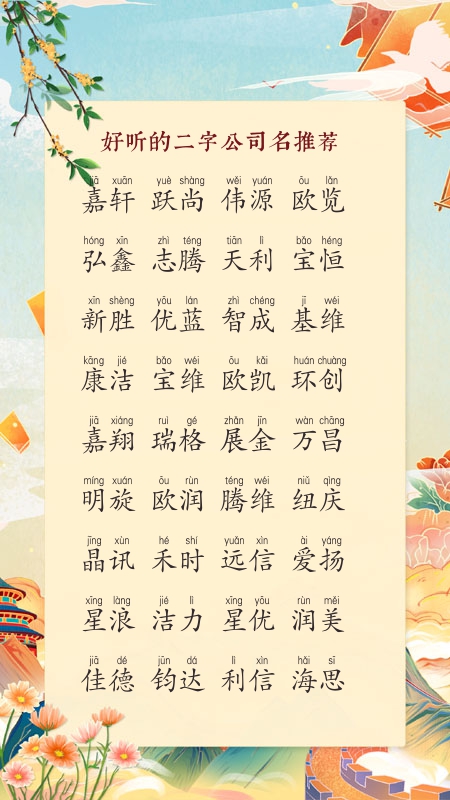 好听的二字公司名推荐
jiā xuān yuè shàng wěi yuán ōu lǎn
嘉轩 跃尚 伟源 欧览
hóng xīn zhì téng tiān lì bǎo héng
弘鑫 志腾 天利 宝恒
xīn shèng yōu lán zhì chéng jī wéi
新胜 优蓝 智成 基维
kāng jié bǎo wéi ōu kǎi huán chuàng
康洁 宝维 欧凯 环创
jiā xiáng ruì gé zhǎn jīn wàn chāng
嘉翔 瑞格 展金 万昌
míng xuán ōu rùn téng wéi niǔ qìng
明旋 欧润 腾维 纽庆
jīng xùn hé shí yuǎn xìn ài yáng
晶讯 禾时 远信 爱扬
xīng làng jié lì xīng yōu rùn měi
星浪 洁力 星优 润美
jiā dé jūn dá lì xìn hǎi sī
佳德 钧达 利信 海思